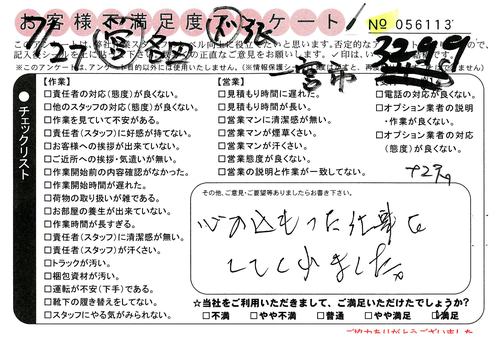 お客様不満足度アンケート!
№ 056113
7/27
3299
【作業】
□責任者の対応(態度)が良くない。
□他のスタッフの対応(態度)が良くない。
□作業を見ていて不安がある。
□責任者(スタッフ)に好感が持てない。
□お客様への挨拶が出来ていない。
□ご近所への挨拶・気遣いが無い。
□作業開始前の内容確認がなかった。
□作業開始時間が遅れた。
□荷物の取り扱いが雑である。
□お部屋の養生が出来ていない。
□作業時間が長すぎる。
□責任者(スタッフ)に清潔感が無い。
□責任者(スタッフ)が汗くさい。
□トラックが汚い。
□梱包資材が汚い。
□運転が不安(下手)である。
□靴下の履き替えをしてない。
□スタッフにやる気がみられない。
●チェックリスト
【営業】
□見積もり時間に遅れた。
□見積もり時間が長い。
□営業マンに清潔感が無い。
□営業マンが煙草くさい。
□営業マンが汗くさい。
□営業態度が良くない。
□営業の説明と作業が一致してない。
□電話の対応が良くない。
□オプション業者の説明
・作業が良くない。
□オプション業者の対応
(態度)が良くない。
その他、ご意見・ご要望等ありましたらお書き下さい。
心の込もった仕事を
してくれました。
☆当社をご利用いただきまして、ご満足いただけたでしょうか?
□不満 □やや不満 □普通 □やや満足 □満足
ご協力ありがとうございました